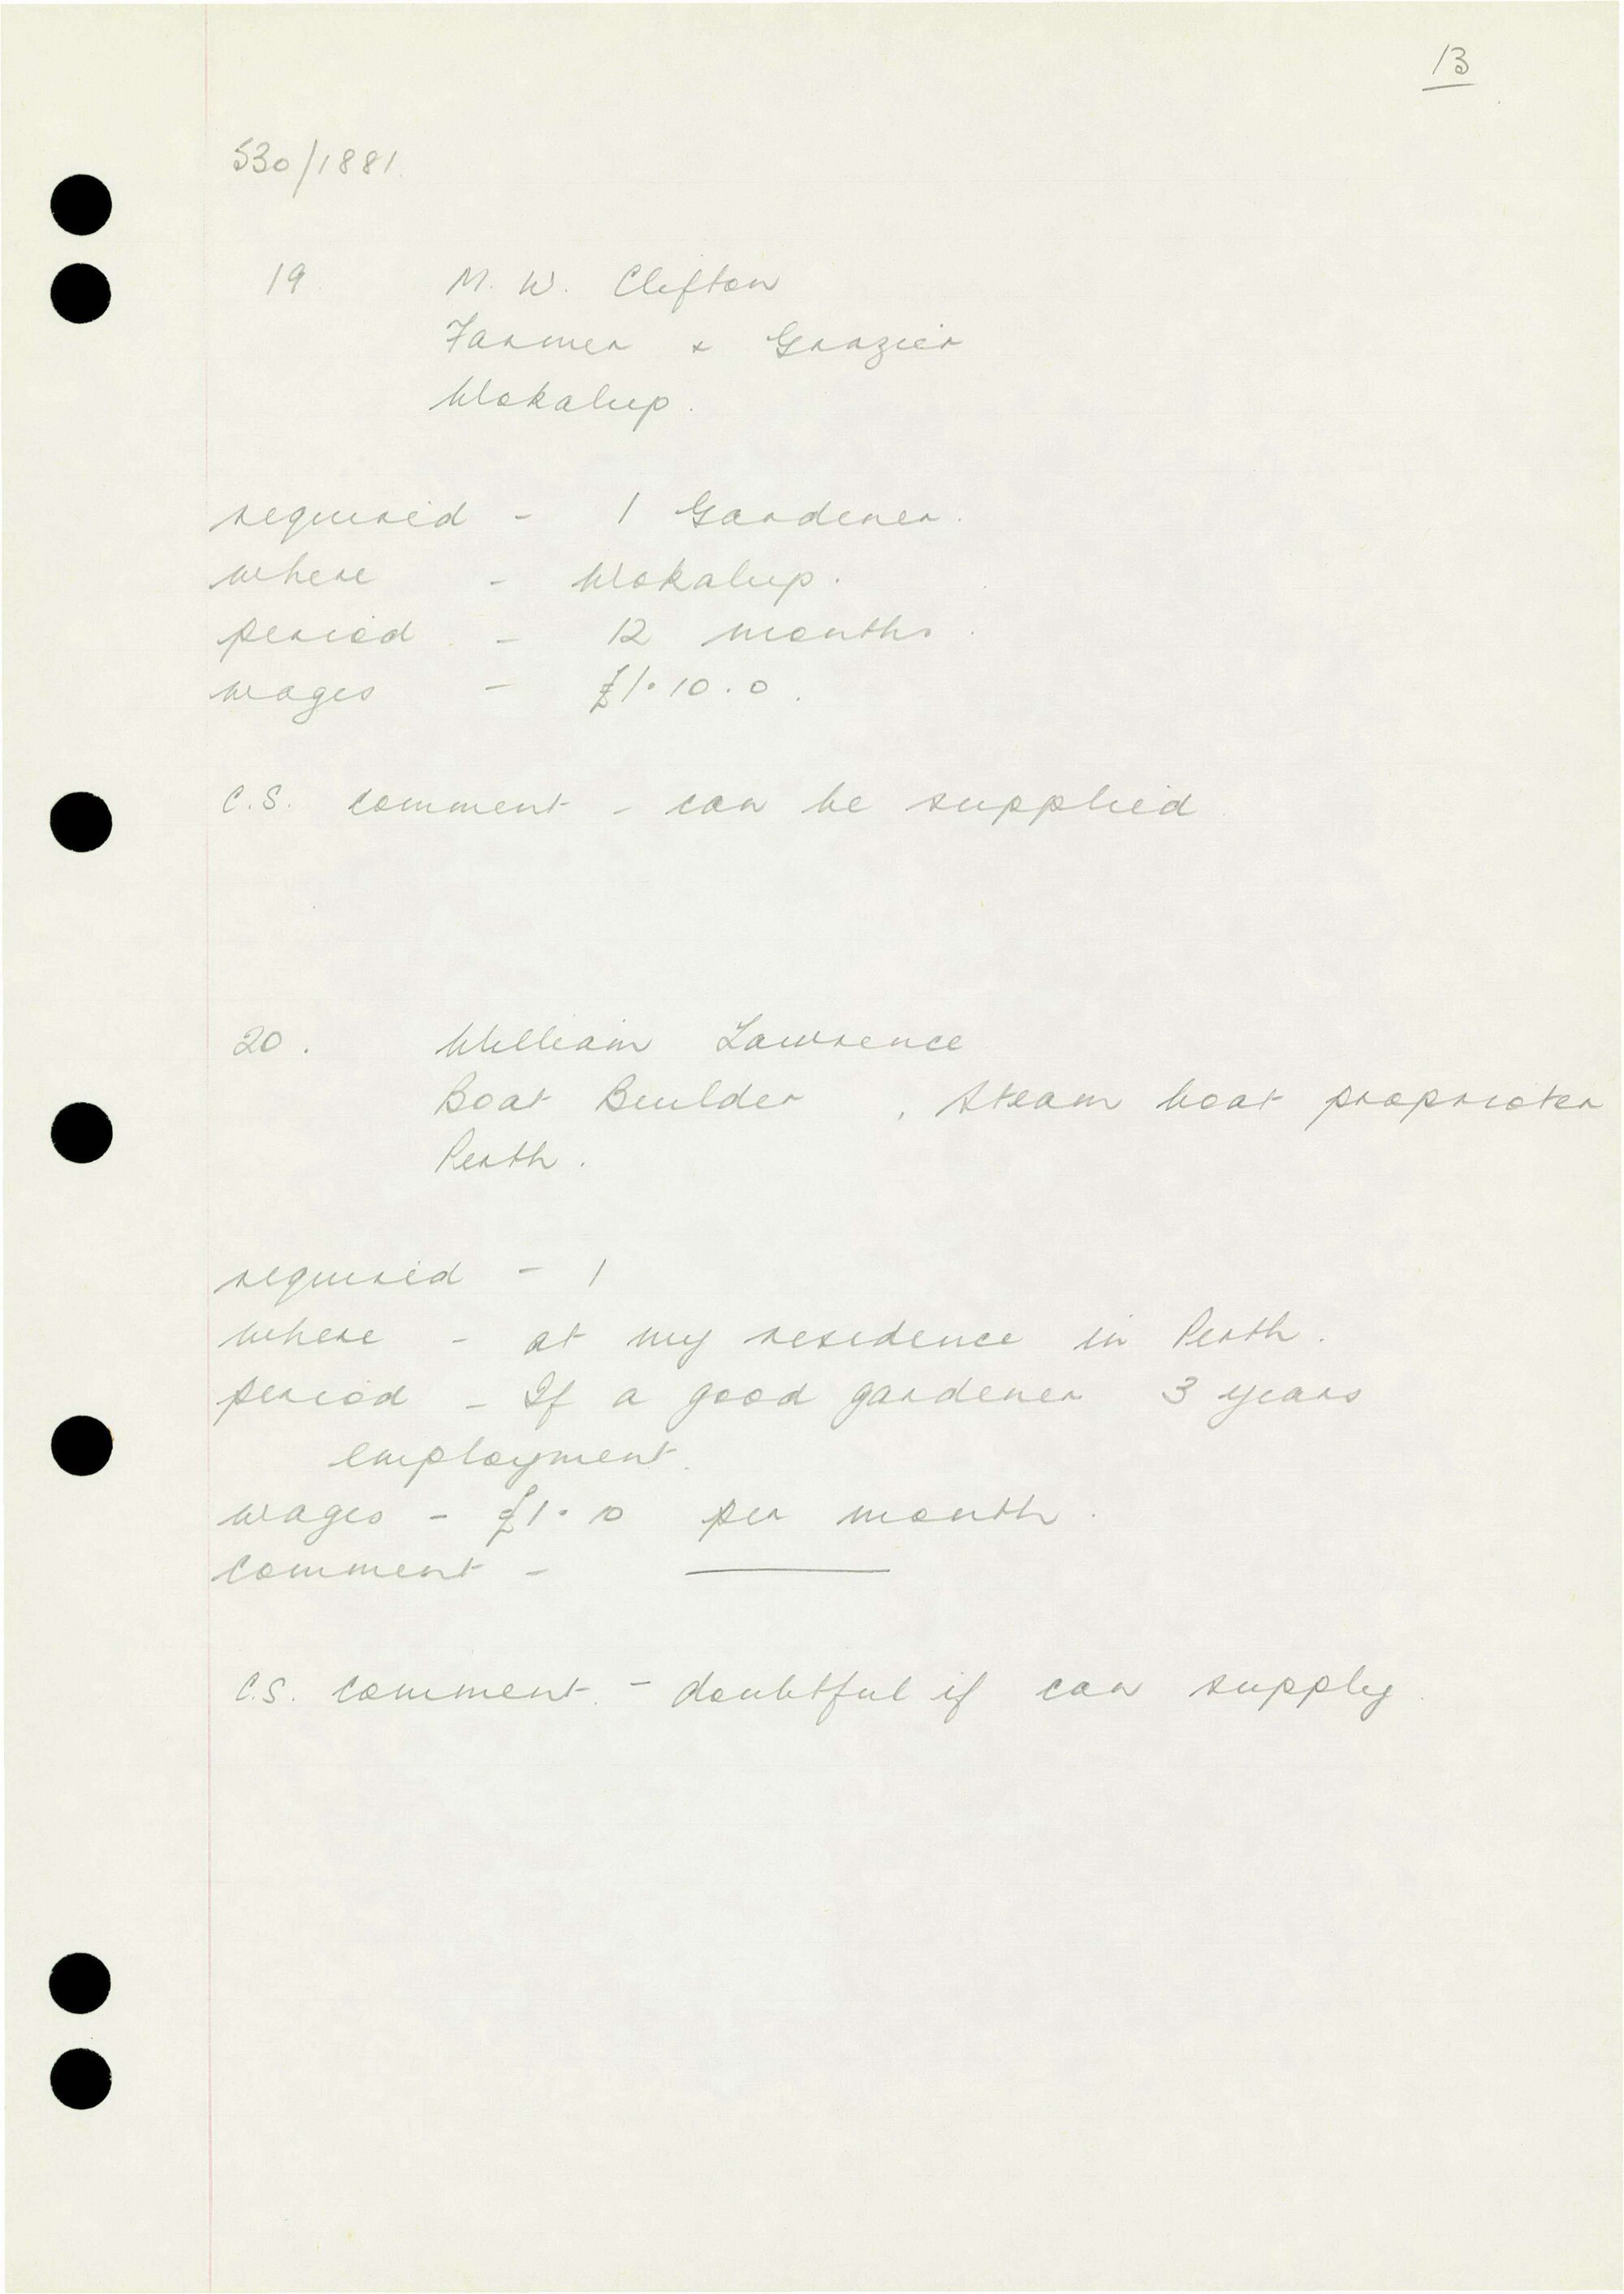 13
530/1881.
19. M. W. Clifton
Farmer & Grazier
Wokalup.
required - 1 Gardener.
where - Wokalup.
period - 12 months.
wages - £1.10.0.
C.S. comment - can be supplied.
20. William Lawrence
Boat Builder, Steam boat proprietor
Perth.
required - 1
where - at my residence in Perth.
period - If a good gardener 3 years
employment.
wages - £1.10 per month.
comment - ———
C.S. comment. - doubtful if can supply.